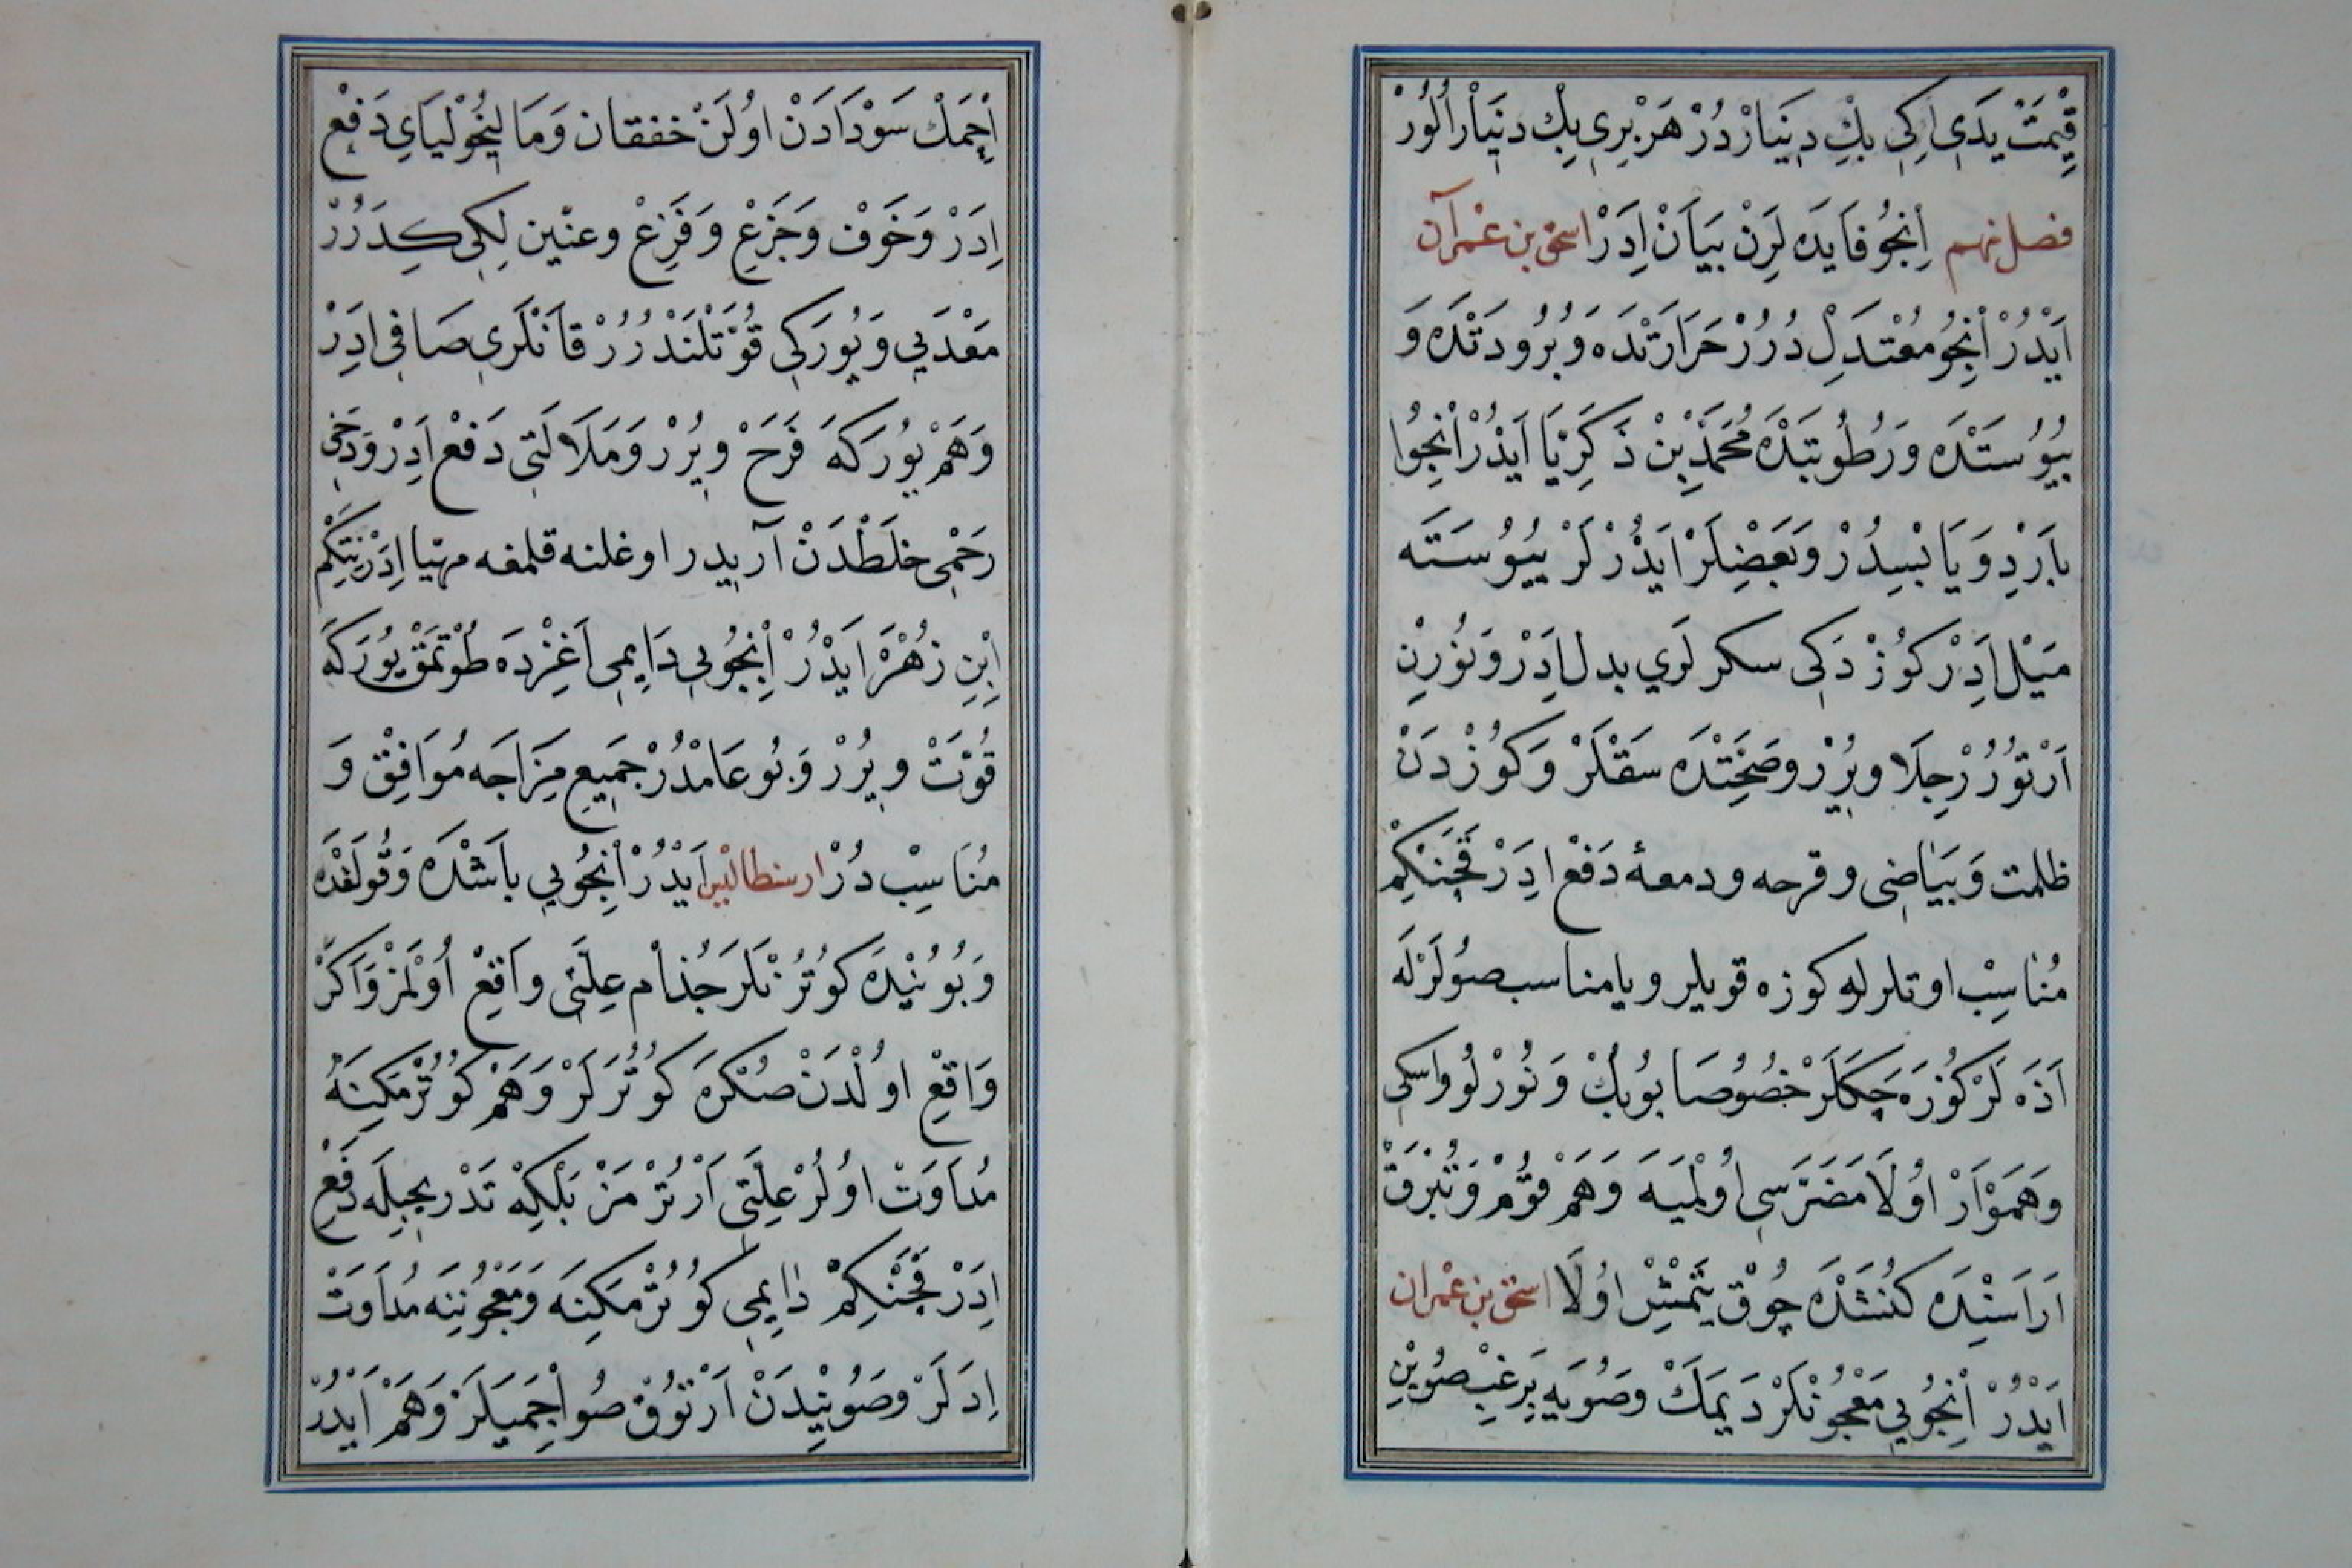 قِيمَتْ يَدَى اِكِى بِڭ دِينَارْدُرْ هَرْبِرِى بِڭ دِينَار اُلُورْ
فصل نهم اِنْجُو فَايَدَه لَرِنْ بَيَانْ اِدَرْ اسحق بن عمرآن
اَيْدُرْ اِنْجُو مُعْتَدِلْ دُرُرْ حَرَارَتْدَه وَبُرُودَتْدَه وَ
يُبُوسَتْدَه وَرُطُوبَتْدَه مُحَمَّدْ بِنْ ذَكَرِيَّا اَيْدُرْ اِنْجُوا
بَارِدْ وَيَابْسِدُرْ وَبَعْضِلَرْ اَيْدُرْلَرْ يُبُوسَتَه
مَيْل اِدَرْ كُوزْدَكِى سكرلَرِي بدل اِدَرْ وَنُورِنْ
اَرْتُورُرْ جِلَا وِيرُرْ وصَحِّتْدَه سَقْلَرْ وَكُوزْدَنْ
ظلمت وَبَيَاضِى وقرحه ودمعهٔ دَفْعْ اِدَرْ قَچَنْكِمْ
مُنَاسِبْ اوتلرله كوزه قويلر ويا مناسب صُولَرْلَه
اَذَه لَرْ كُوزَه چَكَلَرْ خصُوصَا بُويُكْ وَنُورْلُو واسكى
وَهَمْوَارْ اوُلَا مَضَرَّسِى اُولْمَيَه وَهَمْ قُوُمْ وَتُبْرَقْ
اَرَاسِنْدَه كُنَشْدَه چُوقْ يَتْمِشْ اوُلَا اسحق بن عمران
اَيْدُرْ اِنْجُويِى مَعْجُونْلَرْدَ يِمَكْ وصُويَه يَرغِبْ صُويِنْ
اِچْمَكْ سَوْدَادَنْ اوُلَنْ خفقان وَمَالِيخُولْيَايِ دَفْعْ
اِدَرْ وَخَوفْ وَجَزَعْ وَفَزِعْ وعنّين لِكِى كِدَرُرْ
مَعْدَيِى وَيُورَكِى قُوَّتْلَنْدُرُرْ قَانْلَرِى صَافِى اِدَرْ
وَهَمْ يُورَكَه فَرَحْ وِيرُرْ وَمَلَالَتِى دَفْعْ اِدَرْ وَدَخِى
رَحْمِى خلَطْدَنْ آريدر اوغلنه قلمغه مهيّا اِدَرْ نِتَكِمْ
اِبْنِ زُهْرَ اَيْدُرْ اِنْجُويِى دَايِمِى اَغِزْدَه طُوتْمَقْ يُورَكَه
قُوَّتْ وِيرُرْ وَبُو عَامْدُرْ جَمِيعِ مِزَاجَه مُوَافِقْ وَ
مُنَاسِبْ دُرْ ارسطاليس اَيْدُرْ اِنْجُويِى بَاشْدَه وَقُولَقْدَه
وَبُويُنْدَه كُوتُرَنْلَرَ جُذَام عِلَّتِى وَاقِعْ اُولْمَزْ وَاَكَرْ
وَاقِعْ اوُلْدَنْ صُكْرَه كُوتُرَلَرْ وَهَمْ كُوتُرْمَكِينَه
مُدَاوَتْ اوُلُرْ عِلَّتِى اَرْتُرْمَزْ بَلْكِه تَدْرِيجِيلَه دَفْعْ
اِدَرْ قَچَنْكِمْ دَايِمِى كُوتُرْمَكِينَه وَمَعْجُونِنَه مُدَاوَتْ
اِدَلَرْ وصُويِنْدَنْ اَرْتُوقْ صُو اِچْمَيَلَرْ وَهَمْ اَيْدُرْ